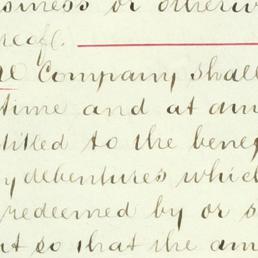 or otherw
Company shall
time and at am
titled to the bene
y debentures which
redeemed by or s
t so that the am